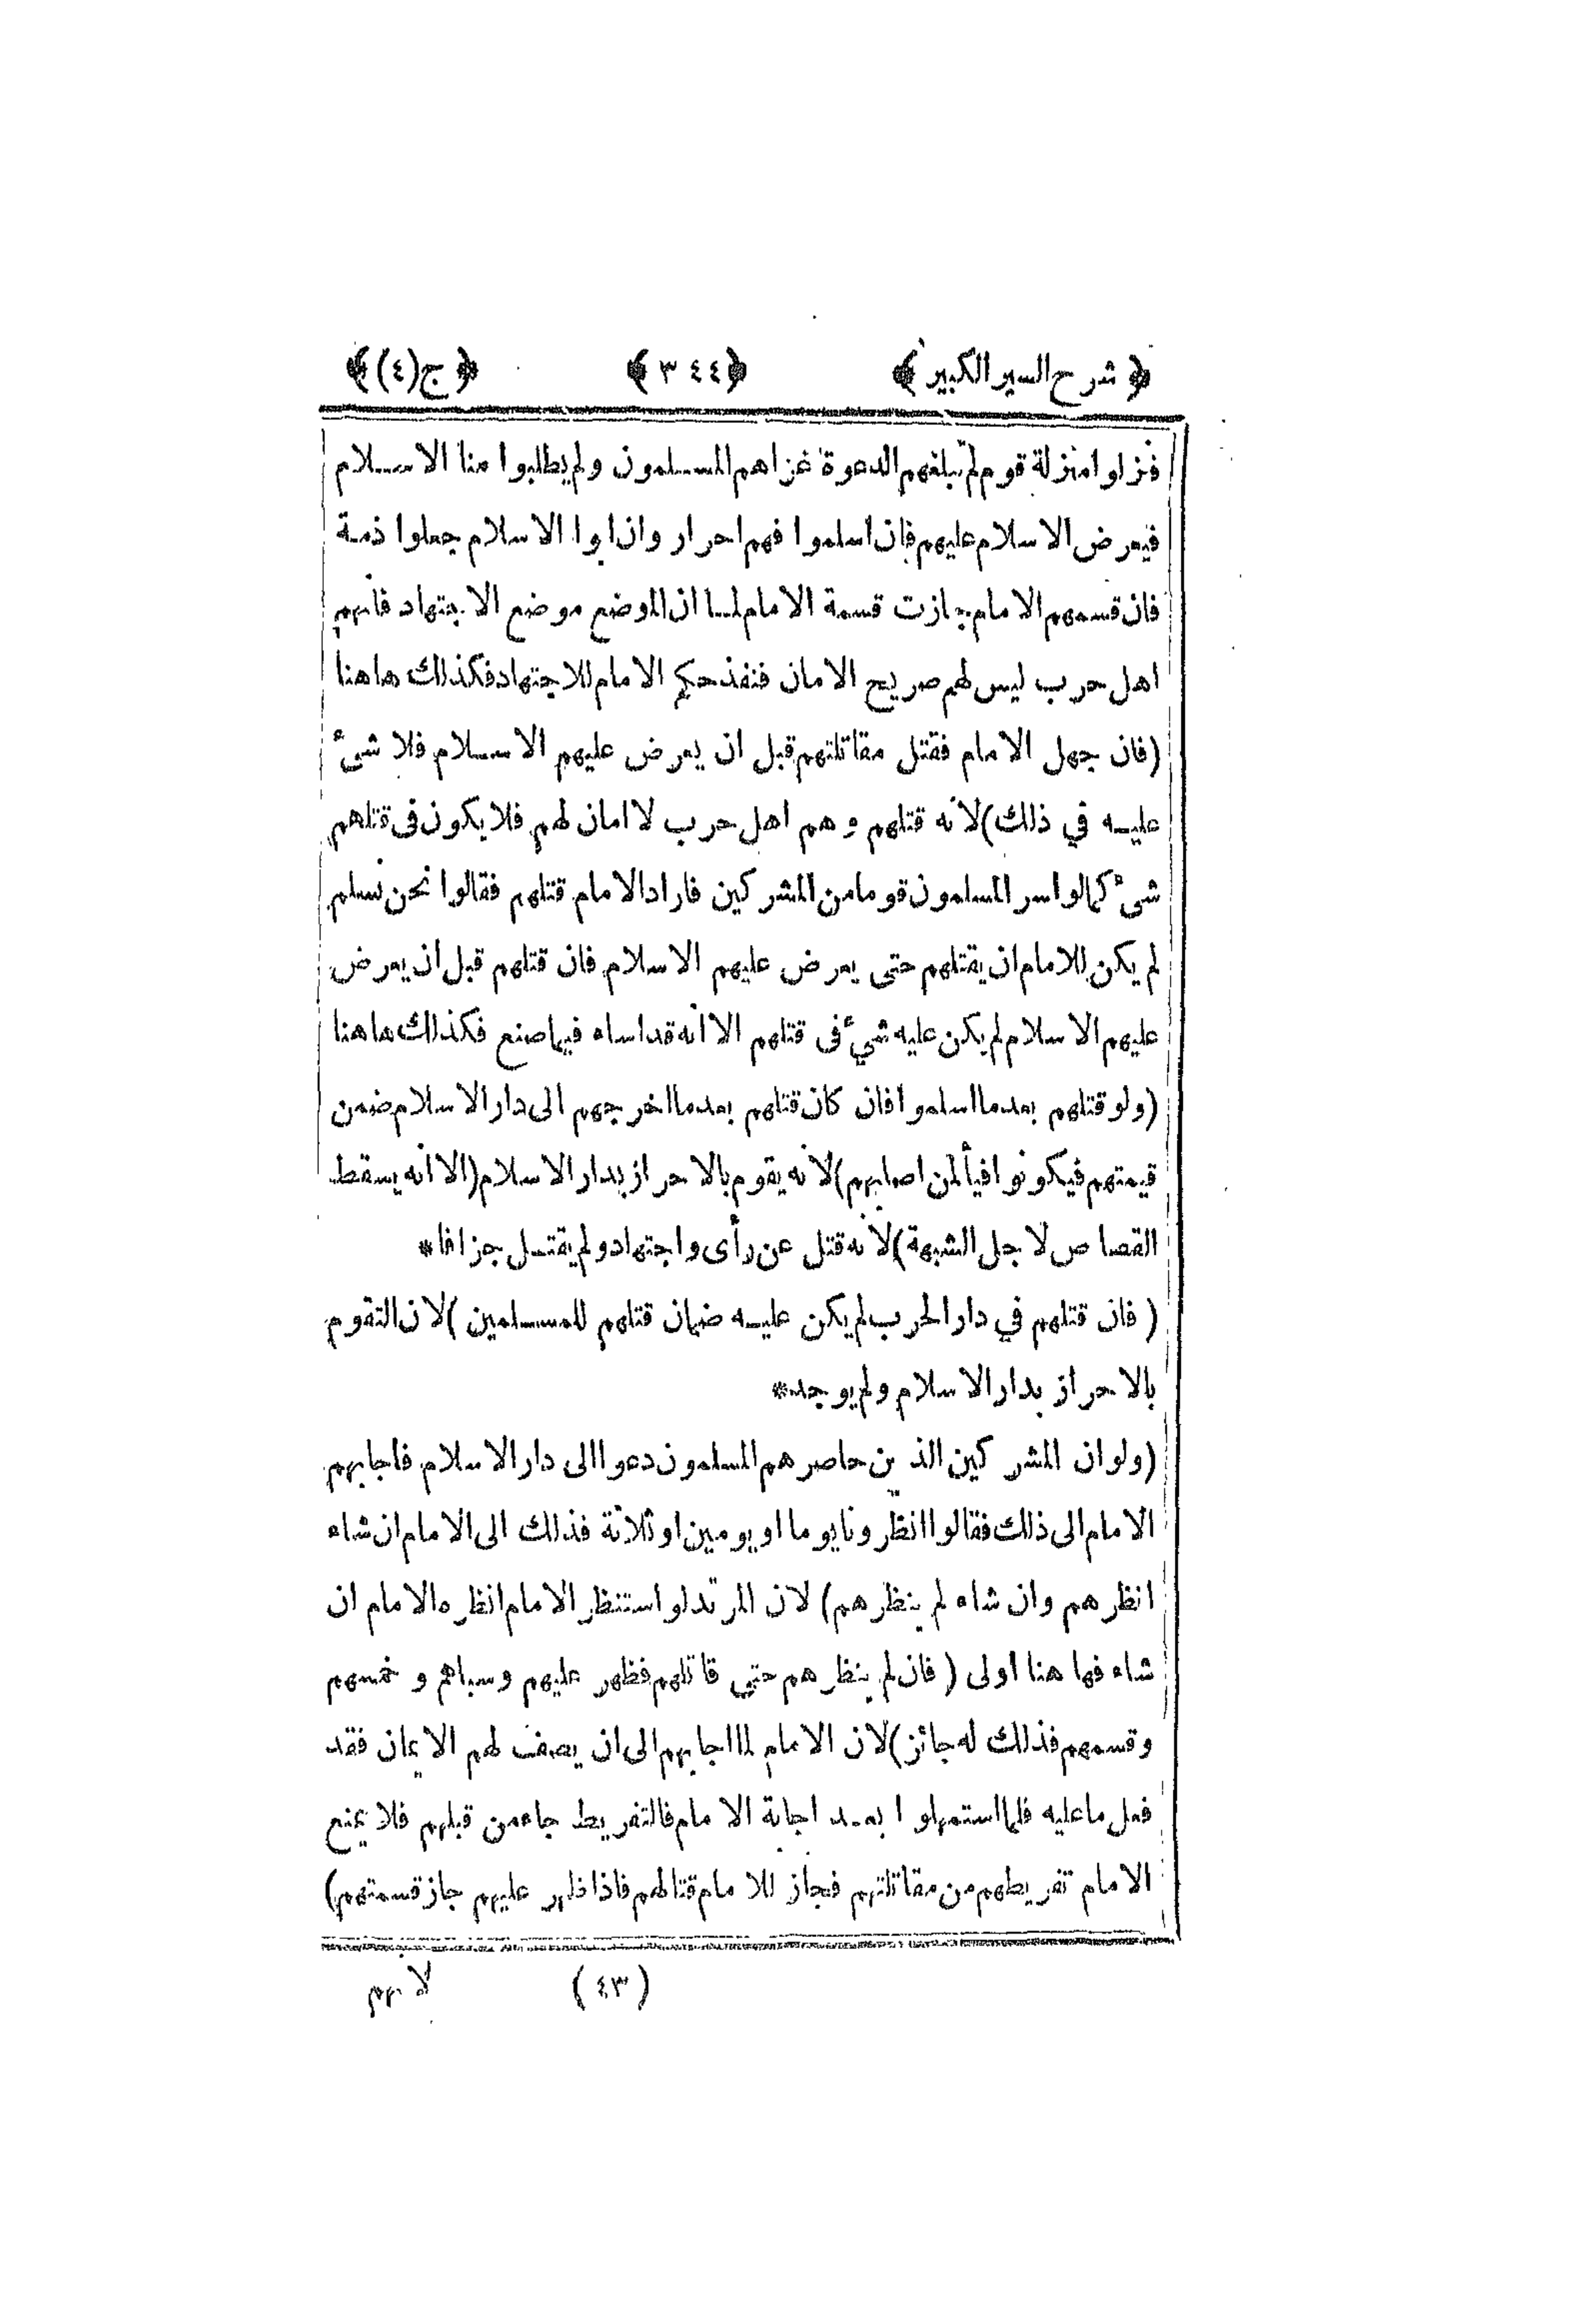 ﴿ شرح السير الكبير ﴾ ﴿٣٤٤﴾ ﴿ج(٤)﴾
فنزلوا منزلة قوم لم تبلغهم الدعوة غزاهم المسلمون ولم يطلبوا منا الاسلام
فيعرض الاسلام عليهم فان اسلموا فهم احرار وان ابوا الاسلام جعلوا ذمة
فان قسمهم الامام جازت قسمة الامام لما ان الموضع موضع الاجتهاد فانهم
اهل حرب ليس لهم صريح الامان فنفذ حكم الامام للاجتهاد فكذلك هاهنا
(فان جهل الامام فقتل مقاتلتهم قبل ان يعرض عليهم الاسلام فلا شئ
عليه في ذلك) لانه قتلهم وهم اهل حرب لا امان لهم فلا يكون فى قتلهم
شئ كما لو اسر المسلمون قوما من المشركين فاراد الامام قتلهم فقالوا نحن نسلم
لم يكن للامام ان يقتلهم حتى يعرض عليهم الاسلام فان قتلهم قبل ان يعرض
عليهم الاسلام لم يكن عليه شئ فى قتلهم الا انه قد اساء فيما صنع فكذلك هاهنا
(ولو قتلهم بعد ما اسلموا فان كان قتلهم بعد ما اخرجهم الى دار الاسلام ضمن
قيمتهم فيكونوا فيأ لمن اصابهم) لانه يقوم بالاحراز بدار الاسلام (الا انه يسقط
القصاص لاجل الشبهة) لانه قتل عن رأى واجتهاد ولم يقتل جزافا*
( فان قتلهم في دار الحرب لم يكن عليه ضمان قتلهم للمسلمين ) لان التقوم
بالاحراز بدار الاسلام ولم يوجد*
(ولو ان المشركين الذين حاصرهم المسلمون دعوا الى دار الاسلام فاجابهم
الامام الى ذلك فقالوا انظرونا يوما او يومين او ثلاثة فذلك الى الامام ان شاء
انظرهم وان شاء لم ينظرهم) لان المرتد لو استنظر الامام انظره الامام ان
شاء فها هنا اولى ( فان لم ينظرهم حتى قاتلهم فظهر عليهم وسباهم وخمسهم
وقسمهم فذلك له جائز) لان الامام لما اجابهم الى ان يصف لهم الايمان فقد
فعل ما عليه فلما استمهلوا بعد اجابة الامام فالتفريط جاء من قبلهم فلا يمنع
الامام تفريطهم من مقاتلتهم فجاز للامام قتالهم فاذا ظهر عليهم جاز قسمتهم)
(٤٣) لانهم